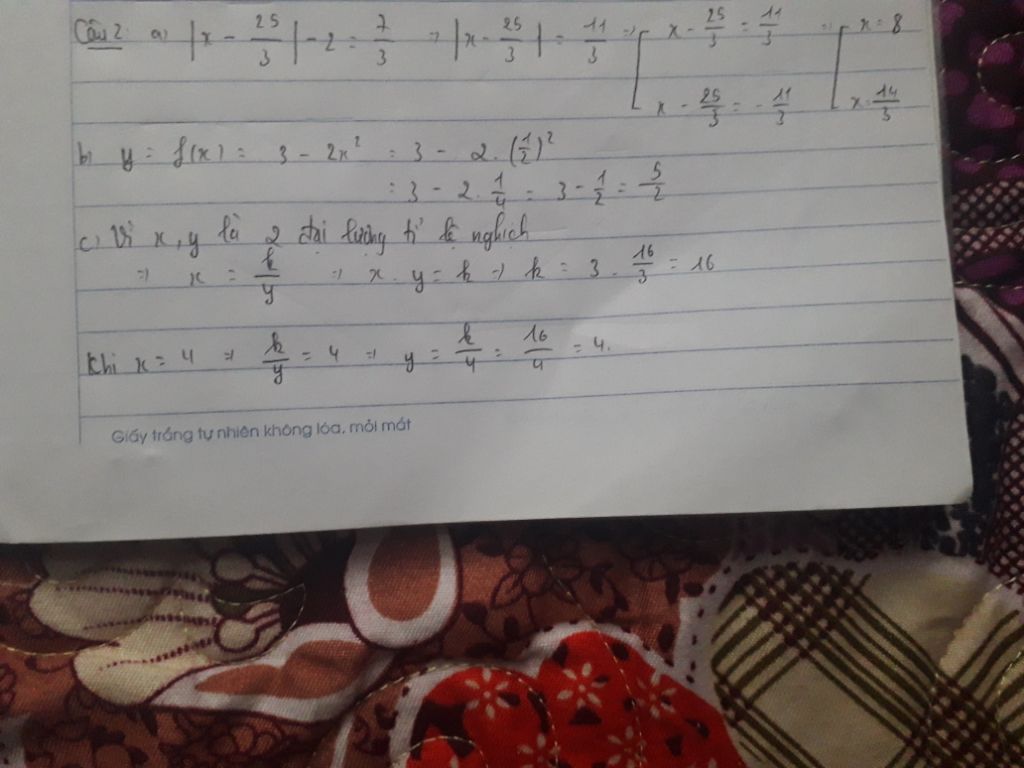 Câu 2: a) |x - 25/3| - 2 = 7/3 => |x - 25/3| = 11/3 => [ x - 25/3 = 11/3 => [ x = 8
x - 25/3 = - 11/3 x = 14/3
b) y = f(x) = 3 - 2x² = 3 - 2. (1/2)²
= 3 - 2. 1/4 = 3 - 1/2 = 5/2
c) Vì x, y là 2 đại lượng tỉ lệ nghịch
=> x = k/y => x. y = k => k = 3 . 16/3 = 16
Khi x = 4 => k/y = 4 => y = k/4 = 16/4 = 4.
Giấy trắng tự nhiên không lóa, mỏi mắt